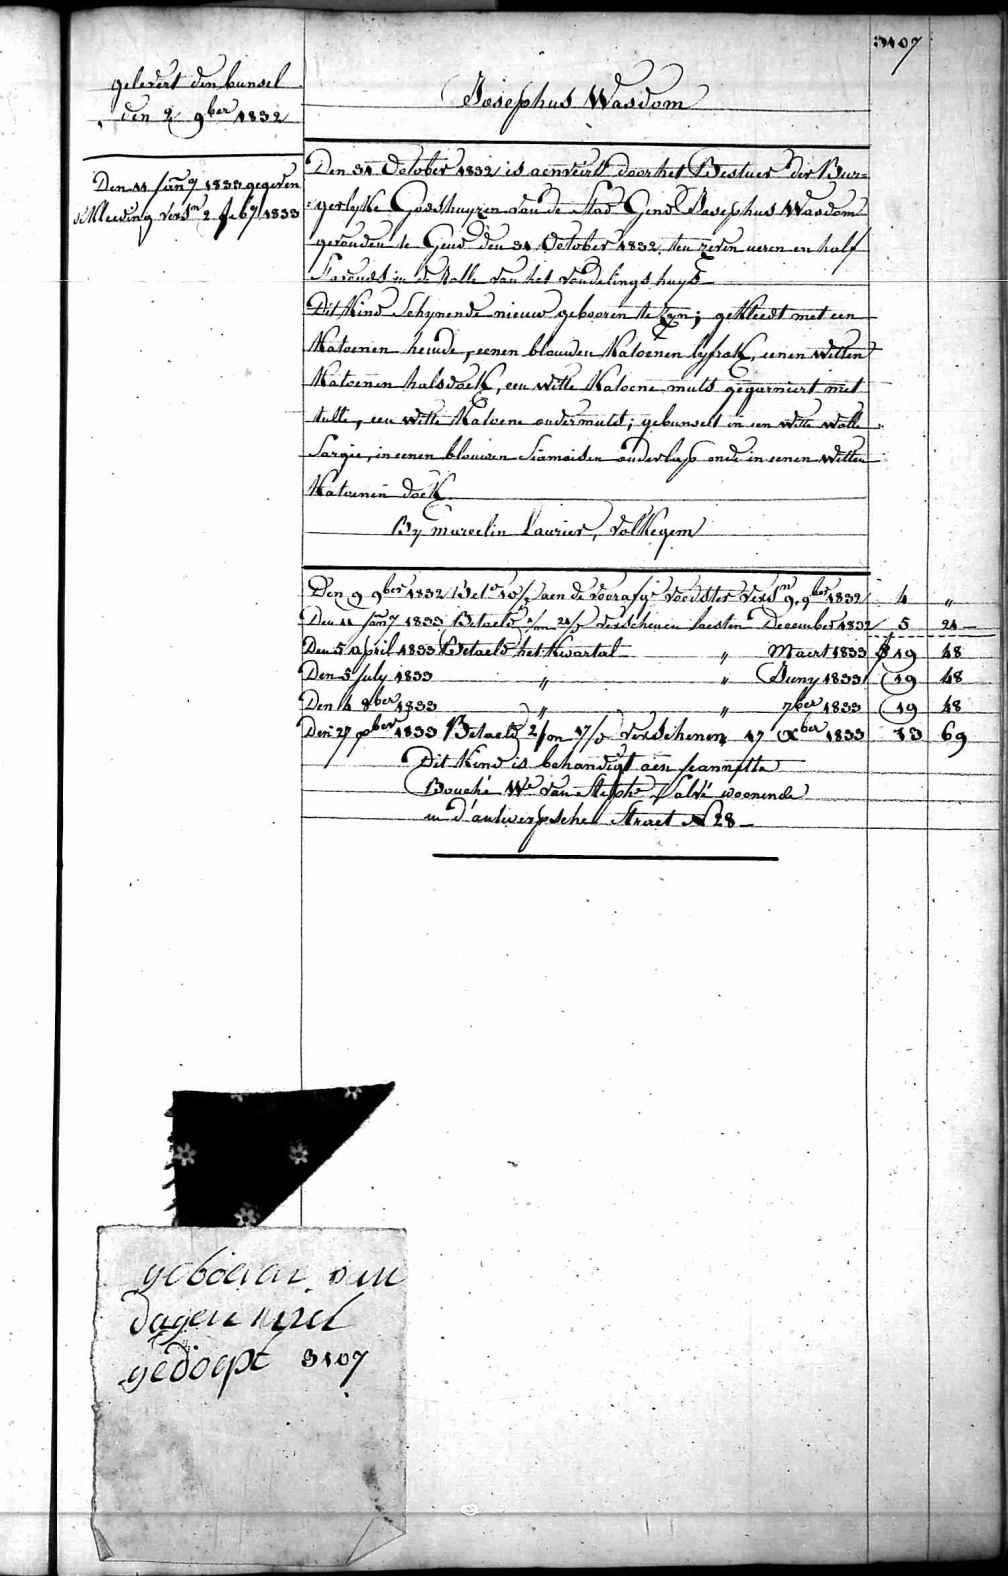 3107
gelevert den bunsel
den 2 9ber 1832
Josephus Wasdom
Den 11 Janry 1833 gegeven
de Kleeding versn 2 feby 1833
Den 31 October 1832 is aenveird door het Bestuer der Bur=
=gerlyke Godshuyzen van de Stad Gend Josephus Wasdom
gevonden te Gend den 31 October 1832 ten zeven ueren en half
s'avonds in de Rolle van het vondelingshuys
Dit Kind schynende nieuw gebooren te zyn; gekleedt met een
Katoenen hemde, eenen blouwen Katoenen lyfrok, eenen witten
Katoenen halsdoek, een witte Katoene muts gegarniert met
tulle, een witte Katoene ondermuts; gebunselt in een witte wolle
Sargie, in eenen blouwen Siamoisen onderlap ende in eenen witten
Katoenen doek
By marcelin Laurier, Volkegem
Den 9 9ber 1832 Betd aen de voorafge voedster versn 9. 9ber 1832 4 "
Den 11 Janry 1833 Betaeld verschenen laesten December 1832 5 21
Den 5 April 1833 Betaeld het Kwartal " Maert 1833 19 48
Den 5 July 1833 " " Juny 1833 19 48
Den 4 8ber 1833 " " 7ber 1833 19 48
Den 27 xber 1833 Betaeld 2/m 17/d verschenen 17 xber 1833 13 69
Dit Kind is behandigt aen Jeannette
Bouché We van Stephe Salvé woonende
in d'antwerpsche Straet N 28
geboeren den
dagen niet
gedoept 3107